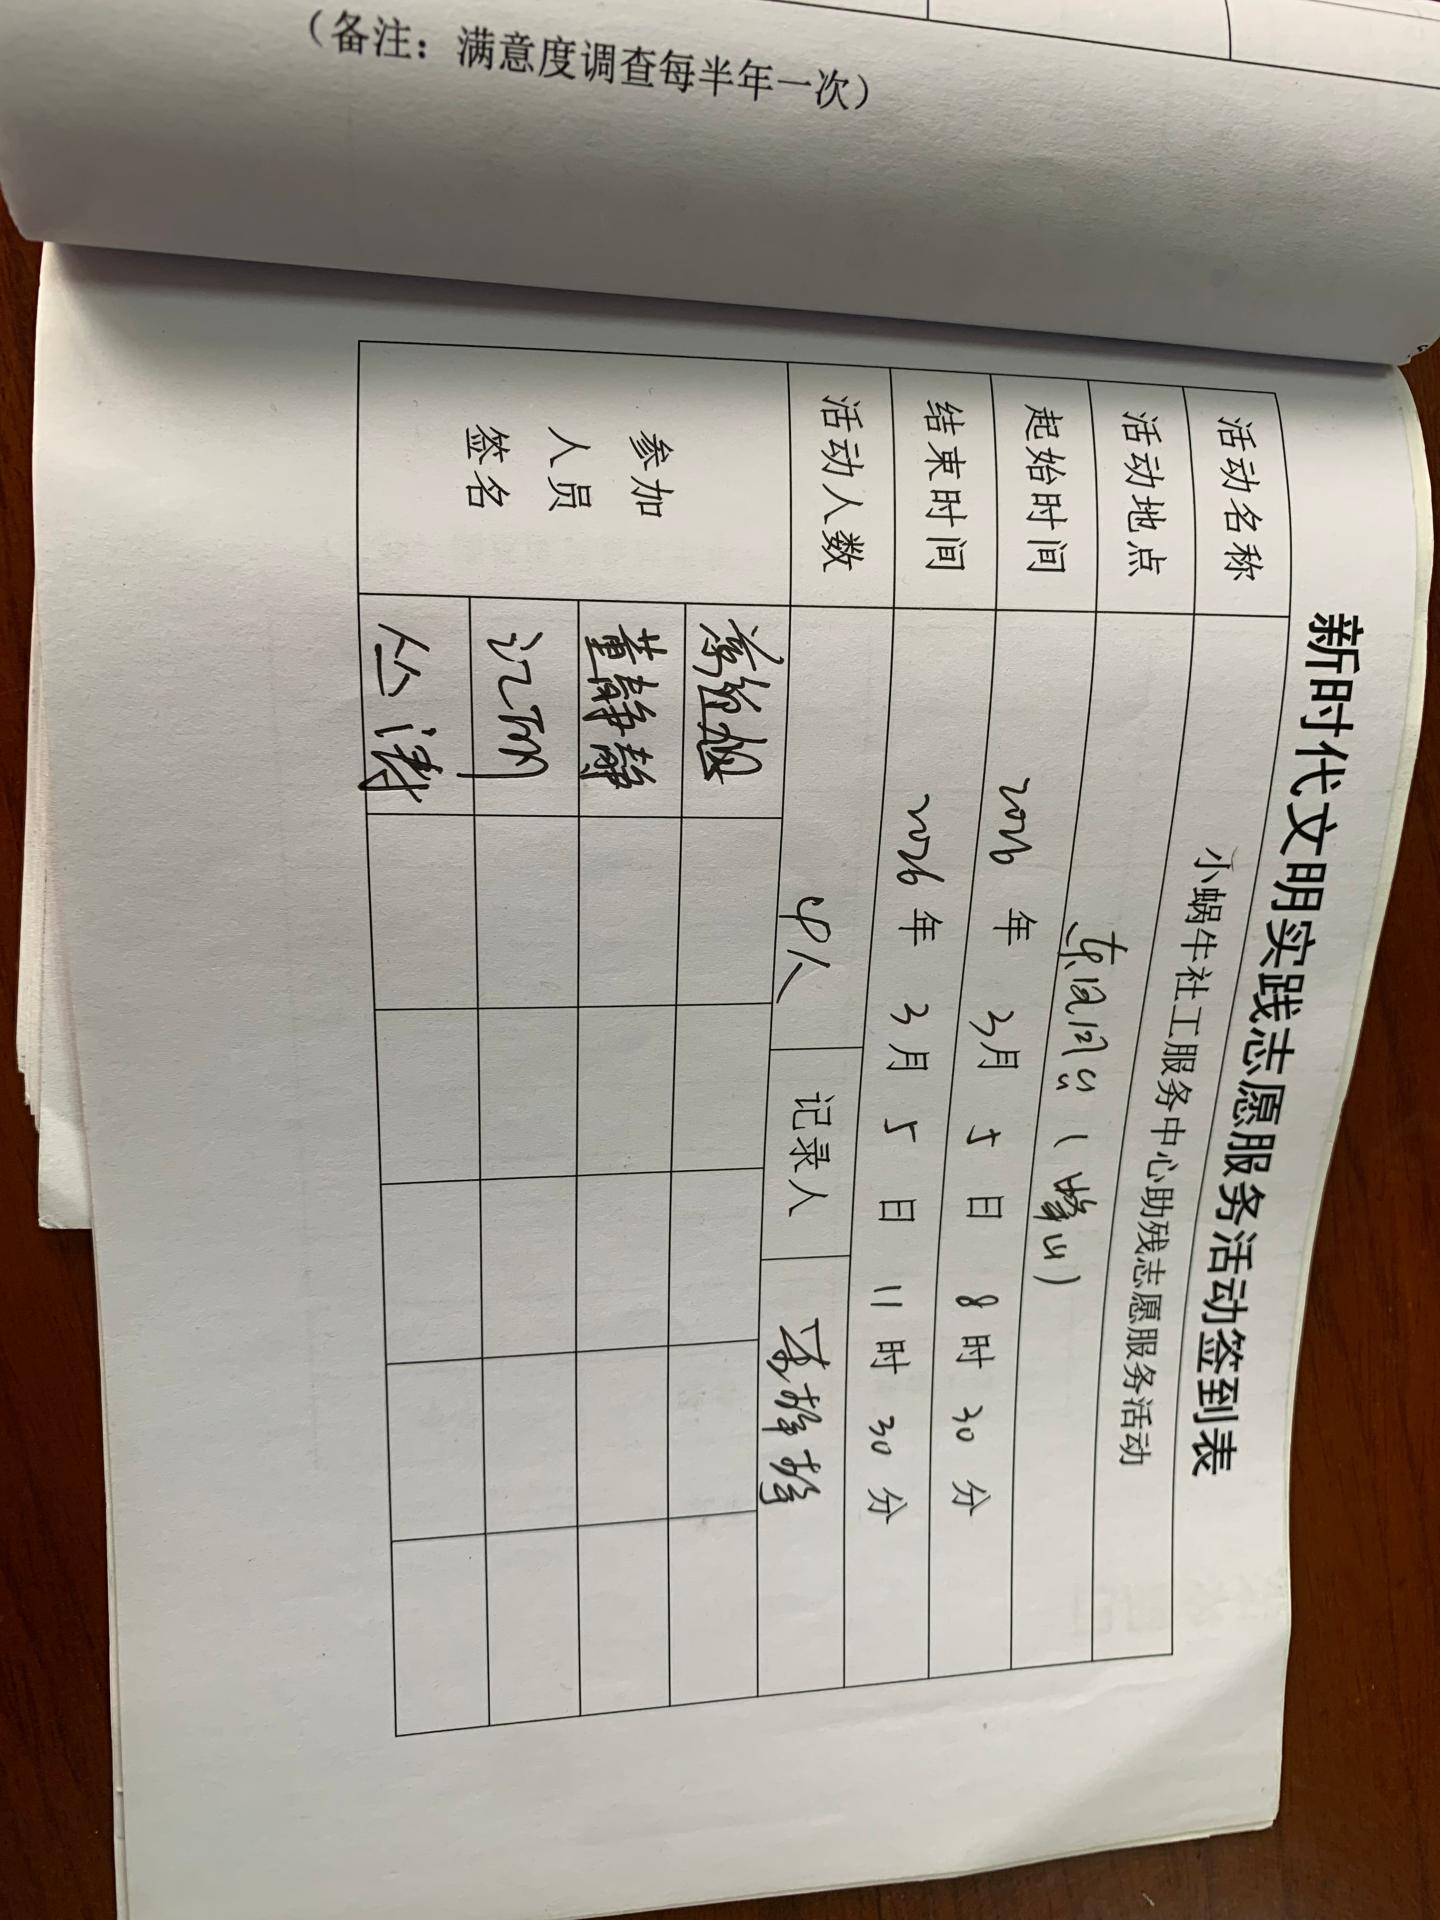 （备注：满意度调查每半年一次）
新时代文明实践志愿服务活动签到表
活动名称 小蜗牛社工服务中心助残志愿服务活动
活动地点
起始时间 2026 年 3 月 5 日 8 时 30 分
结束时间 2026 年 3 月 5 日 11 时 30 分
活动人数 4人 记录人
参加
人员
签名
董静静
丛涛